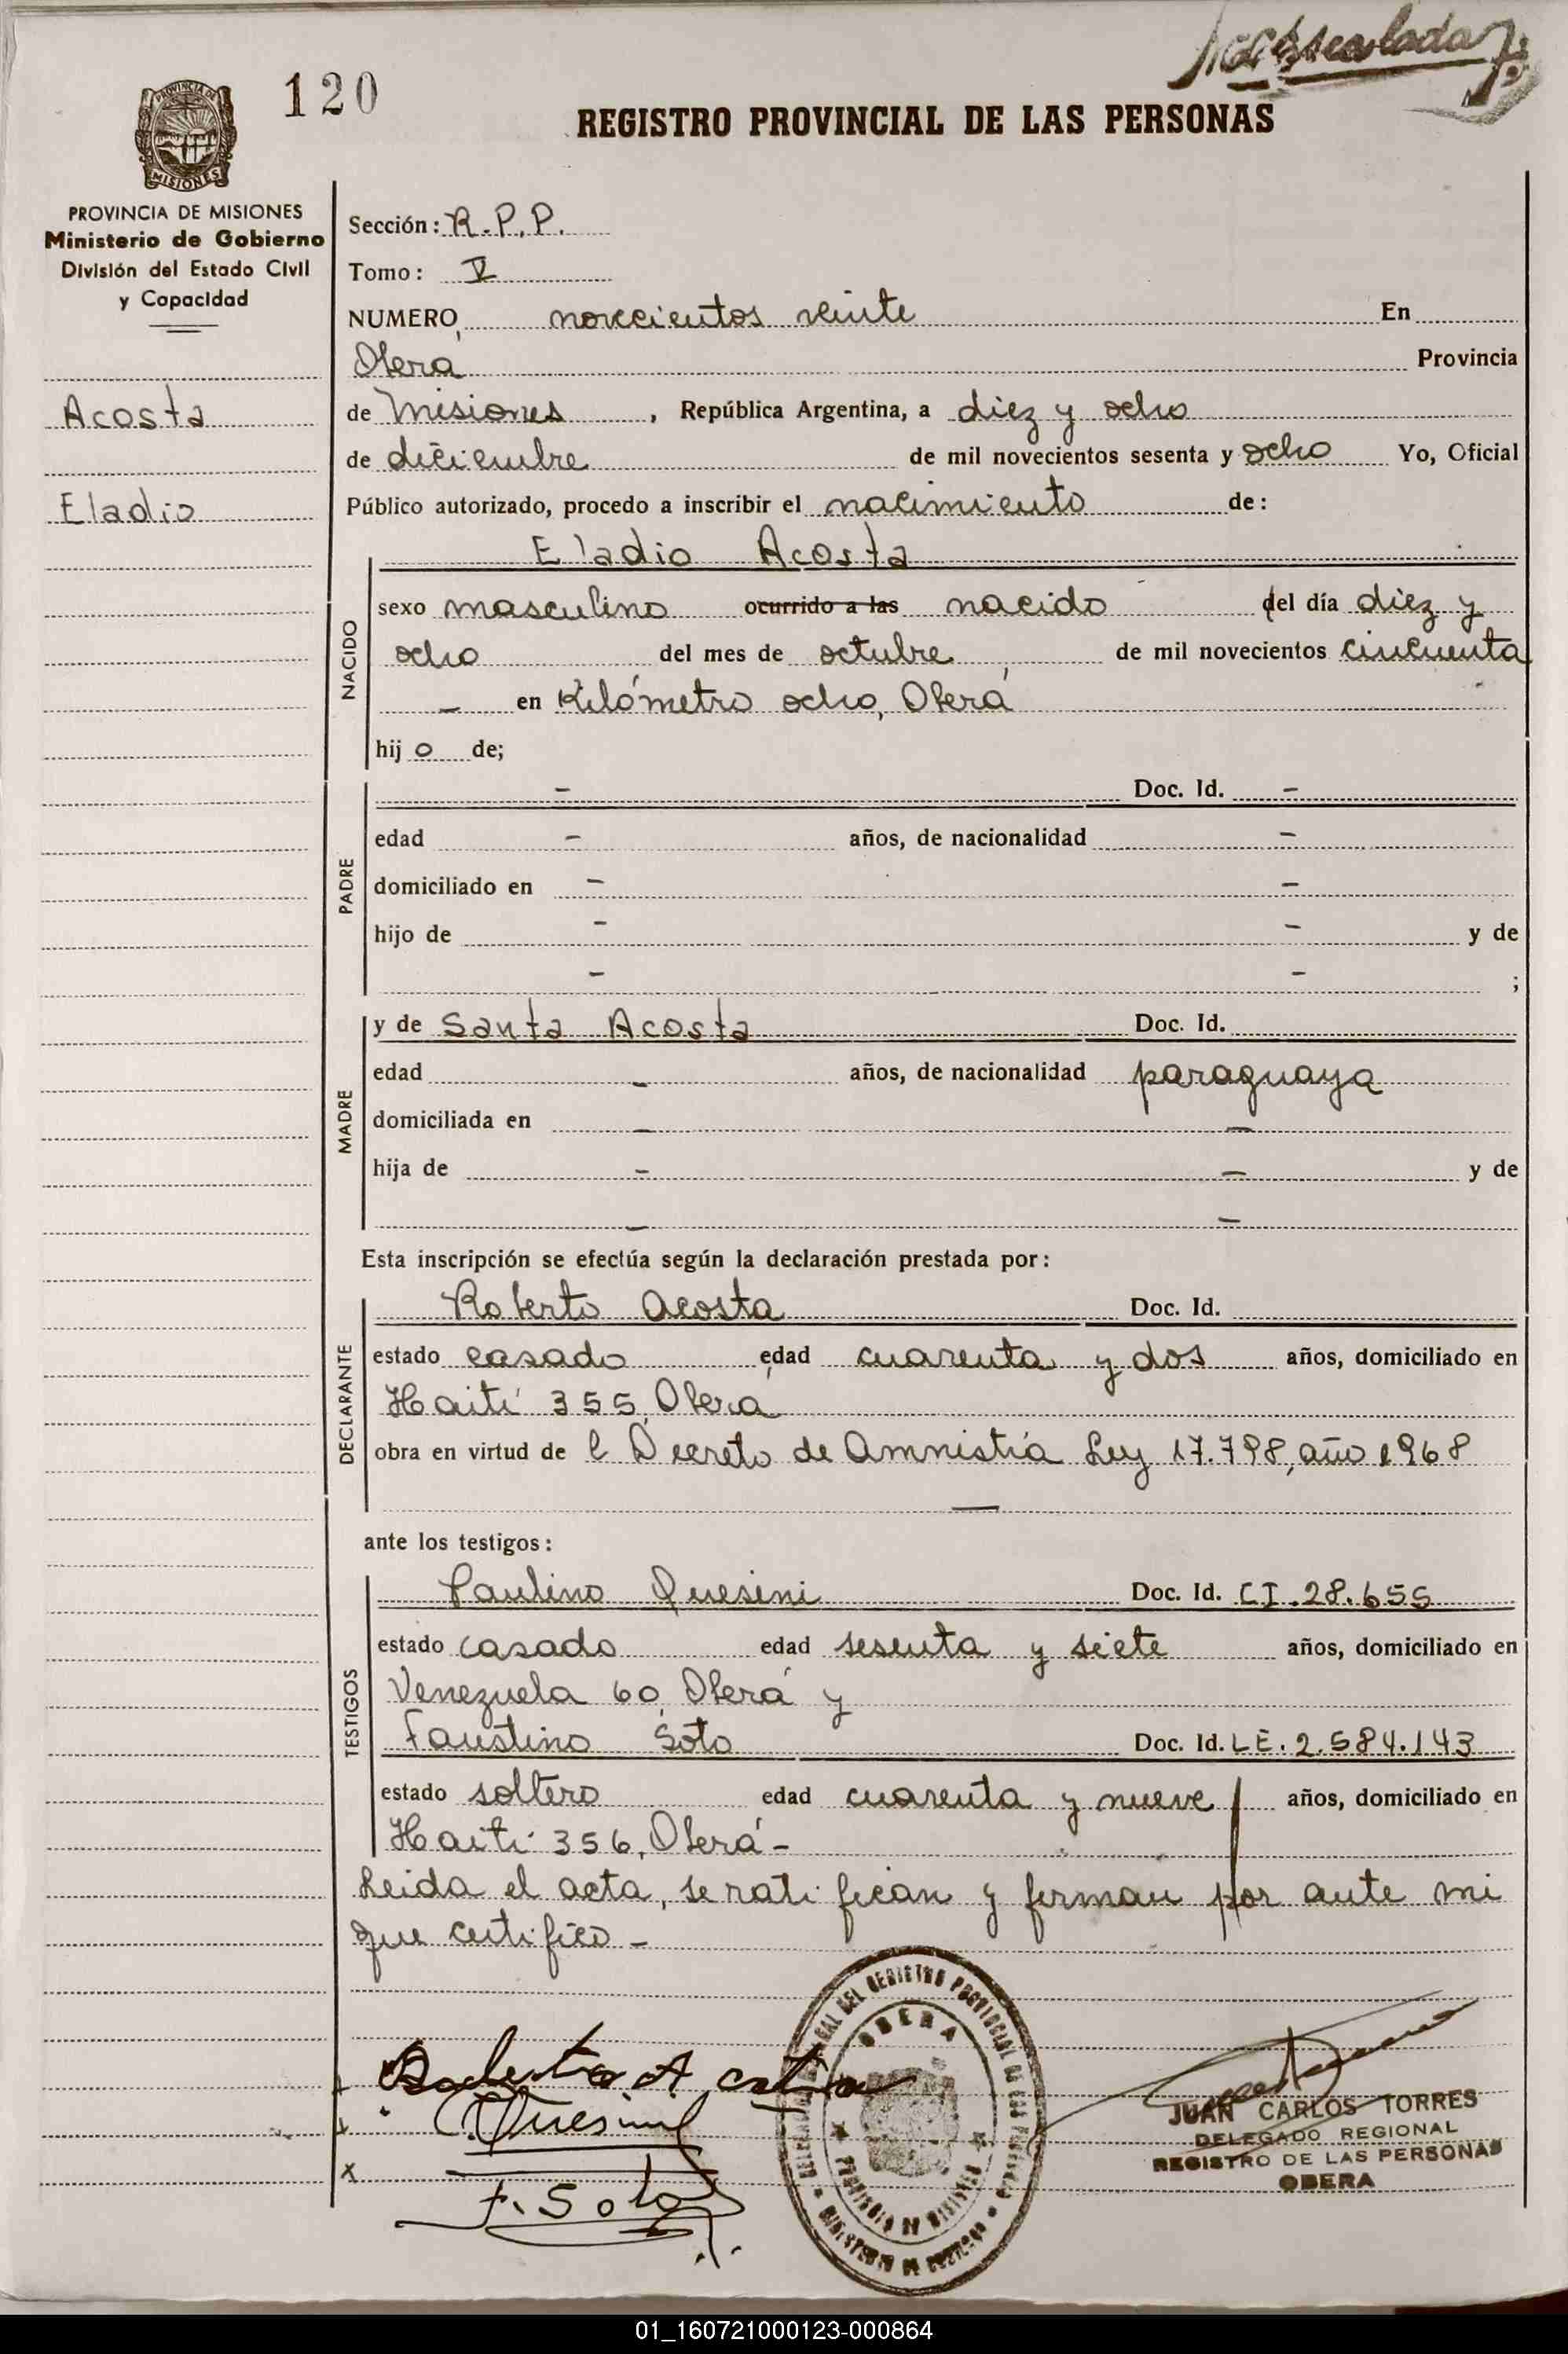 120
REGISTRO PROVINCIAL DE LAS PERSONAS
PROVINCIA DE MISIONES
Ministerio de Gobierno
División del Estado Civil
y Capacidad
Acosta
Eladio
Sección: R.P.P.
Tomo: V
NUMERO novecientos veinte En
Oberá Provincia
de Misiones, República Argentina, a diez y ocho
de diciembre de mil novecientos sesenta y ocho Yo, Oficial
Público autorizado, procedo a inscribir el nacimiento de:
Eladio Acosta
NACIDO
sexo masculino ocurrido a las nacido del día diez y
ocho del mes de octubre, de mil novecientos cincuenta
— en Kilómetro ocho, Oberá
hijo de;
PADRE
- Doc. Id. -
edad - años, de nacionalidad -
domiciliado en - -
hijo de - - y de
- - ;
MADRE
y de Santa Acosta Doc. Id.
edad - años, de nacionalidad paraguaya
domiciliada en - -
hija de - - y de
- -
Esta inscripción se efectúa según la declaración prestada por:
DECLARANTE
Roberto Acosta Doc. Id.
estado casado edad cuarenta y dos años, domiciliado en
Haití 355, Oberá
obra en virtud de l Decreto de Amnistía Ley 17.798, año 1968
—
ante los testigos:
TESTIGOS
Paulino Quesini Doc. Id. C.I. 28.655
estado casado edad sesenta y siete años, domiciliado en
Venezuela 60, Oberá y
Faustino Soto Doc. Id. L.E. 2.584.143
estado soltero edad cuarenta y nueve años, domiciliado en
Haití 356, Oberá -
Leida el acta, se ratifican y firman por ante mi
que certifico -
F. Soto
OBERA
PROVINCIA DE MISIONES
JUAN CARLOS TORRES
DELEGADO REGIONAL
REGISTRO DE LAS PERSONAS
OBERA
01_160721000123-000864